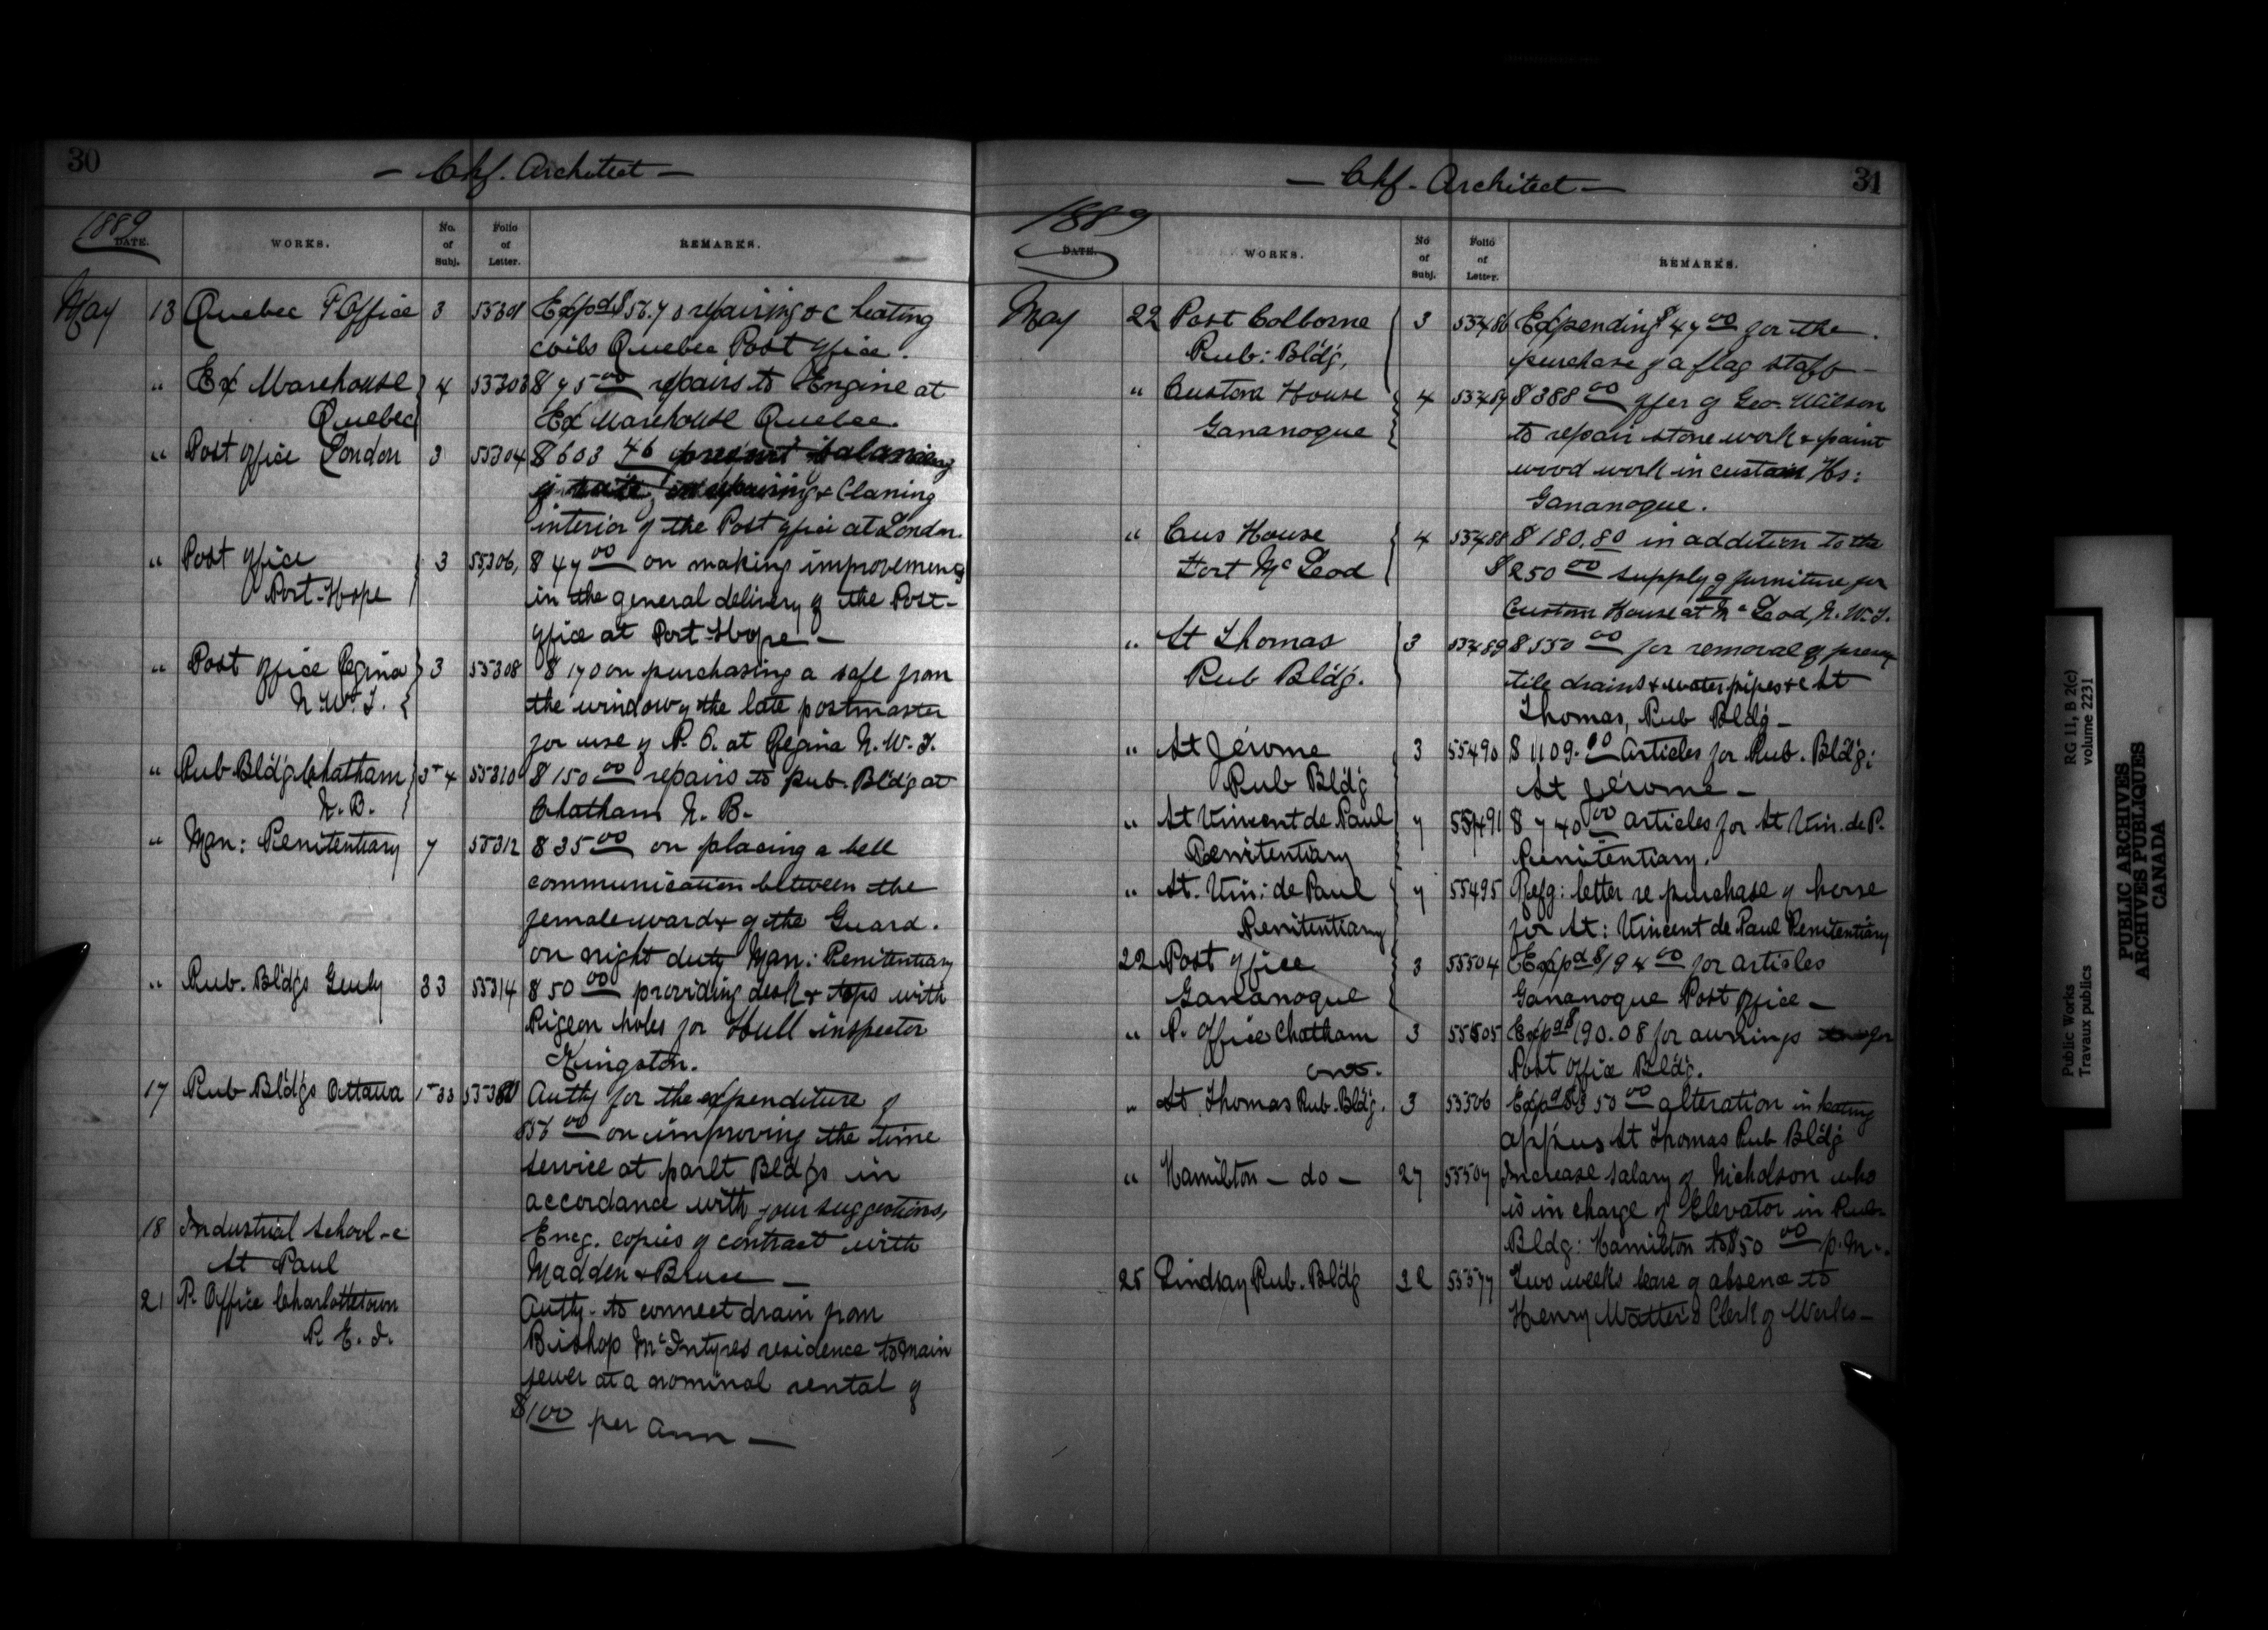 30
- Chf. Architect -
1889
DATE. WORKS. No. of Subj. Folio of Letter. REMARKS.
May 13 Quebec P Office 3 55301 Expd $56.70 repairing &c heating
coils Quebec Post office.
" Ex Warehouse 4 55303 $75 00 repairs to Engine at
Quebec Ex Warehouse Quebec.
" Post office London 3 55304 $603 46
repairing & Claning
interior of the Post office at London.
" Post office 3 55306, $47 00 on making improvements
Port-Hope in the general delivery of the Post-
office at Port-Hope -
" Post office Regina 3 55308 $170 on purchasing a safe from
N.W.T. the window of the late postmaster
for use of P.O. at Regina N.W.T.
" Pub Bldg Chatham 3+4 55310 $150 00 repairs to pub. Bldg at
N.B. Chatham N.B.
" Man: Penitentiary 7 55312 $35 00 on placing a bell
communication between the
female ward & of the Guard.
on night duty Man: Penitentiary
" Pub. Bldgs Genly 33 55314 $50 00 providing desk & tops with
Pigeon holes for Hull inspector
Kingston.
17 Pub Bldgs Ottawa 1+33 Authy for the expenditure of
$56 00 on improving the time
service at parlt Bldgs in
accordance with your suggestions,
18 Industrial School - Encg. copies of contract with
St Paul Madden & Bruce -
21 P. Office Charlottetown Authy - to connect drain from
P.E.I. Bishop McIntyres residence to main
sewer at a nominal rental of
$1 00 per ann -
31
- Chf - Architect -
1889
DATE. WORKS. No of Subj. Folio of Letter. REMARKS.
May 22 Port Colborne 3 55486 Expending $47 00 for the
Pub: Bldg, purchase of a flag staff -
" Custom House 4 55487 $388 00 offer of Geo. Wilson
Gananoque to repair stone work & paint
wood work in custom Hs:
Gananoque.
" Cus House 4 55488 $180.80 in addition to the
Fort McLeod $250 00 supply of furniture for
Custom House at McLeod, N.W.T.
" St Thomas 3 55489 $550 00 for removal of
Pub Bldg. tile drains & water pipes &c St
Thomas, Pub Bldg -
" St Jérome 3 55490 $1109.00 Articles for Pub. Bldg;
Pub Bldg St Jérome -
" St Vincent de Paul 7 55491 $740 00 articles for St Vin. de P.
Penitentiary Penitentiary.
" St. Vin: de Paul 7 55495 Refg: letter re purchase of horse
Penitentiary for St: Vincent de Paul Penitentiary
22 Post office 3 55504 Expd $194 00 for articles
Gananoque Gananoque Post office -
" P. Office Chatham 3 55505 Expd $190.08 for awnings for
Ont. Post Office Bldg.
" St. Thomas Pub. Bldg. 3 55506 Expd $50 00 alteration in heating
St Thomas Pub Bldg
" Hamilton - do - 27 55507 Increase salary of Nicholson who
is in charge of Elevator in Pub-
Bldg: Hamilton to $50 00 p.m.
25 Lindsay Pub. Bldg 32 55577 Two weeks leave of absence to
Henry Watters Clerk of Works -
Public Works
Travaux publics
RG 11, B 2(c)
volume 2231
PUBLIC ARCHIVES
ARCHIVES PUBLIQUES
CANADA